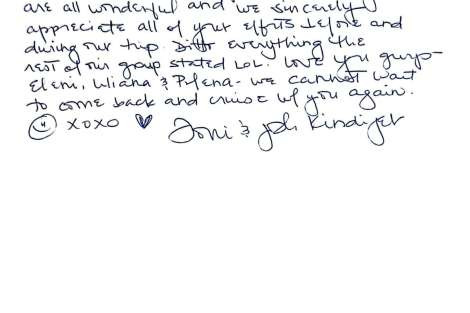 are all wonderful and we sincerely
appreciate all of your efforts before and
during our trip. Ditto everything the
rest of our group stated LOL. Love you guys-
Eleni, Iliana & - we cannot wait
to come back and cruise w/ you again.
xoxo ♥ Joni & Kindijer